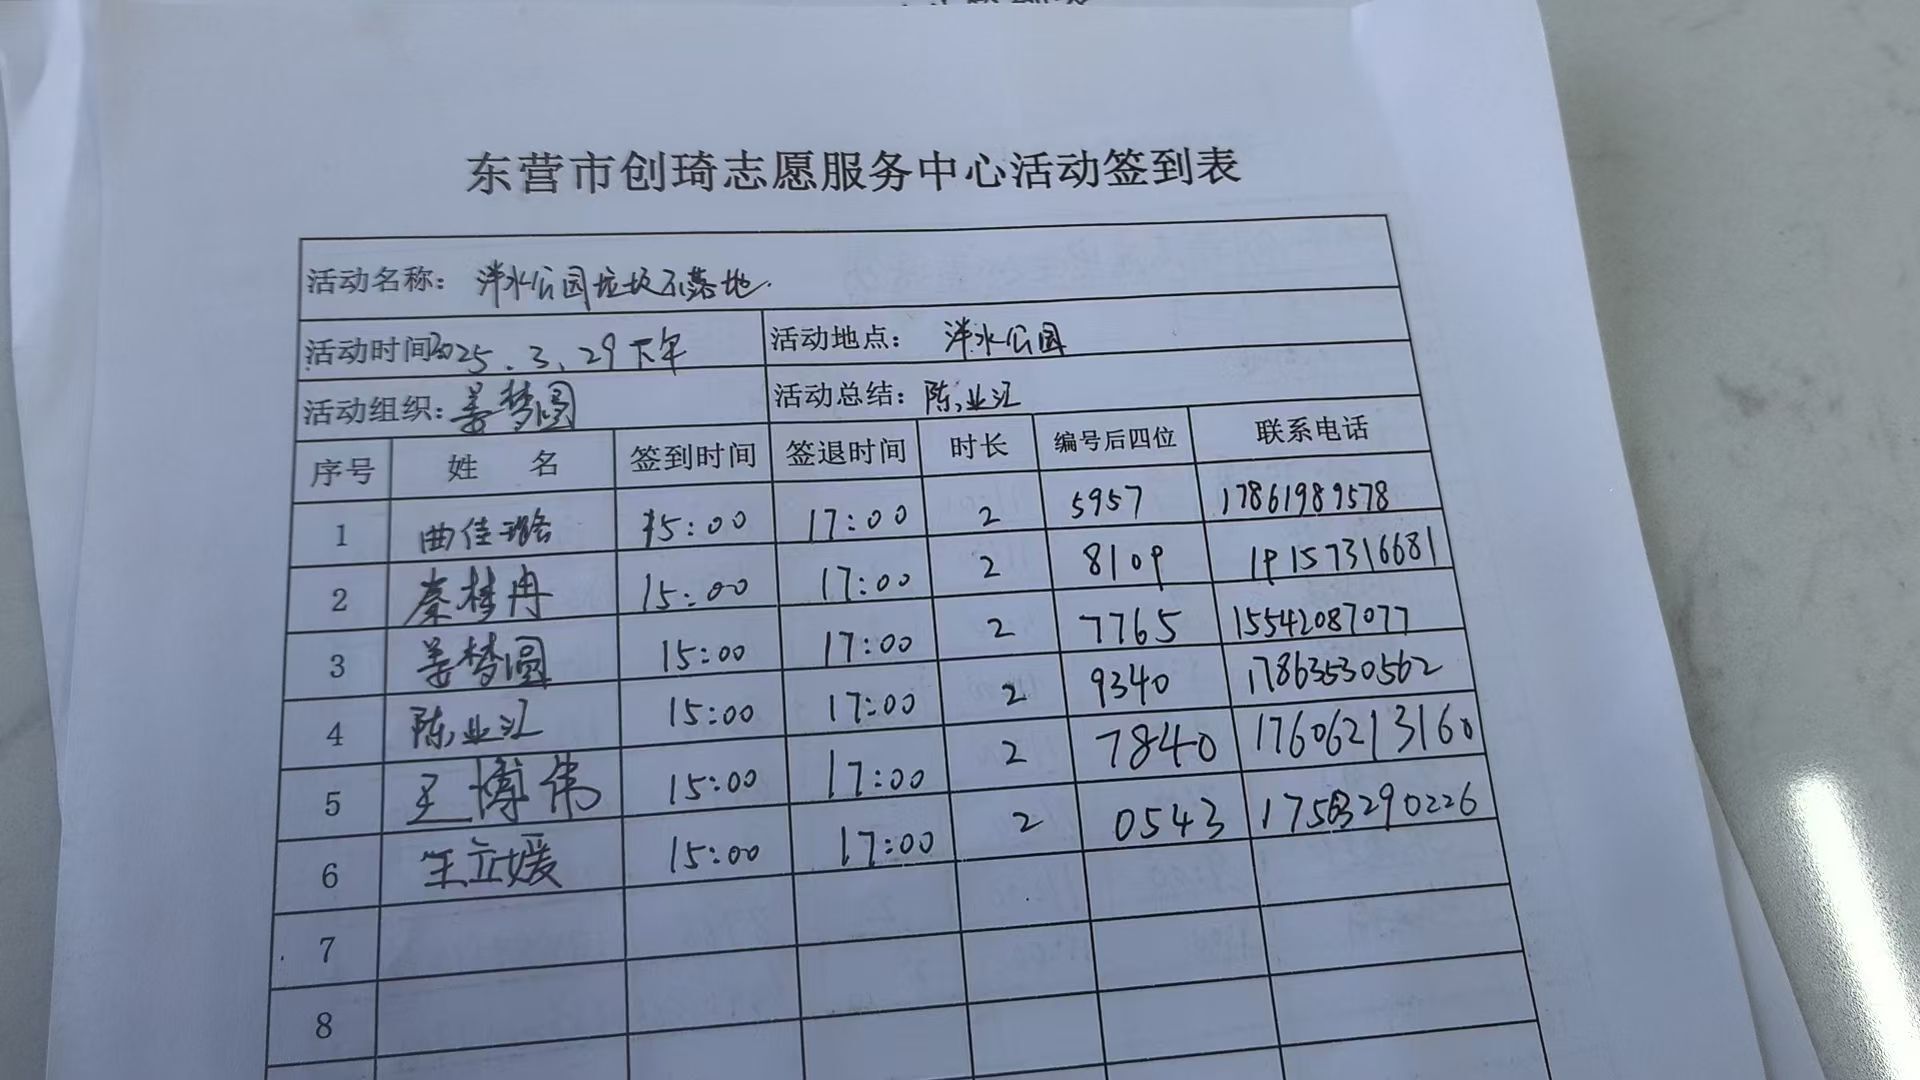 东营市创琦志愿服务中心活动签到表
活动名称：泮水公园垃圾不落地.
活动时间2025.3.29下午 活动地点： 泮水公园
活动组织：姜梦圆 活动总结：陈业汇
序号 姓 名 签到时间 签退时间 时长 编号后四位 联系电话
1 曲佳璐 15:00 17:00 2 5957 17861989578
2 秦梦冉 15:00 17:00 2 8109 19157316681
3 姜梦圆 15:00 17:00 2 7765 15542087077
4 陈业汇 15:00 17:00 2 9340 17863530562
5 王博伟 15:00 17:00 2 7840 17606213160
6 王立媛 15:00 17:00 2 0543
7
8